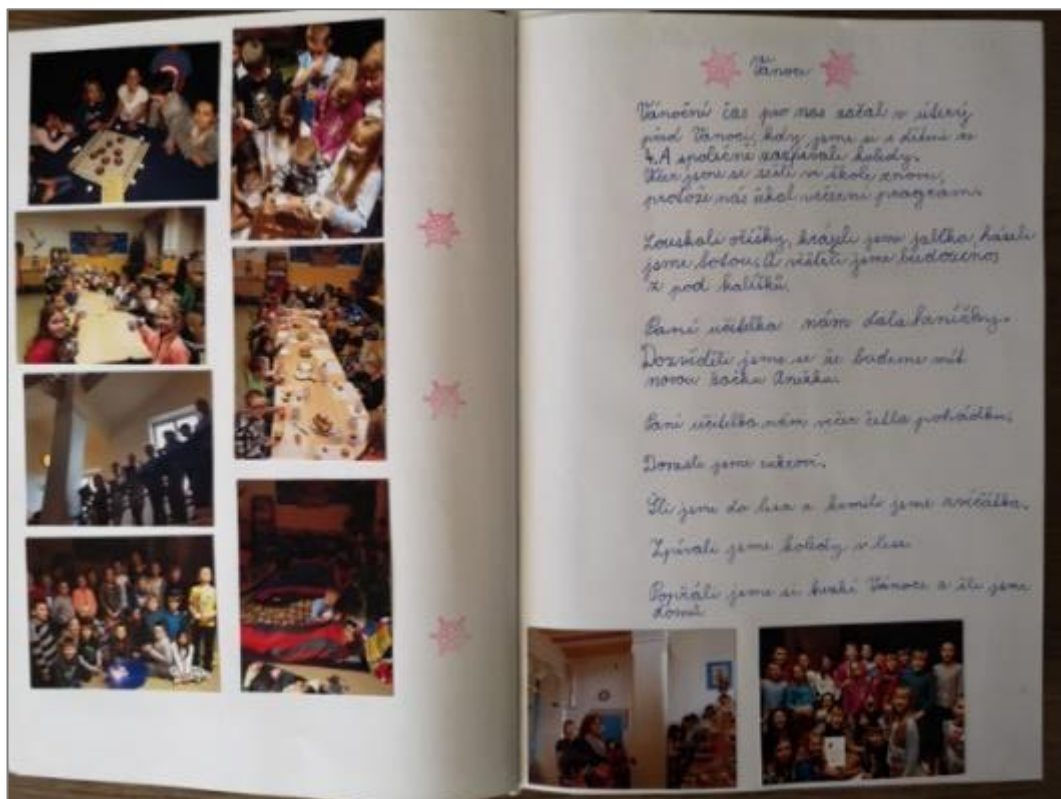 Vánoce
Vánoční čas pro nas začal v úterý
před Vánoci, kdy jsme si s dětmi ze
4.A společně zazpívali koledy.
Večer jsme se sešli ve škole znovu,
protože nás čekal večerní program.
Louskali oříšky, krájeli jsme jablka, házeli
jsme botou. A věštili jsme budoucnost
z pod kalíšků.
Paní učitelka nám dala
Dozvěděli jsme se že budeme mít
novou Anežku.
Paní učitelka nám večer četla pohádku.
jsme cukroví.
Šli jsme do lesa a krmili jsme zvířátka.
Zpívali jsme koledy v lese.
Popřáli jsme si hezké Vánoce a šli jsme
domů